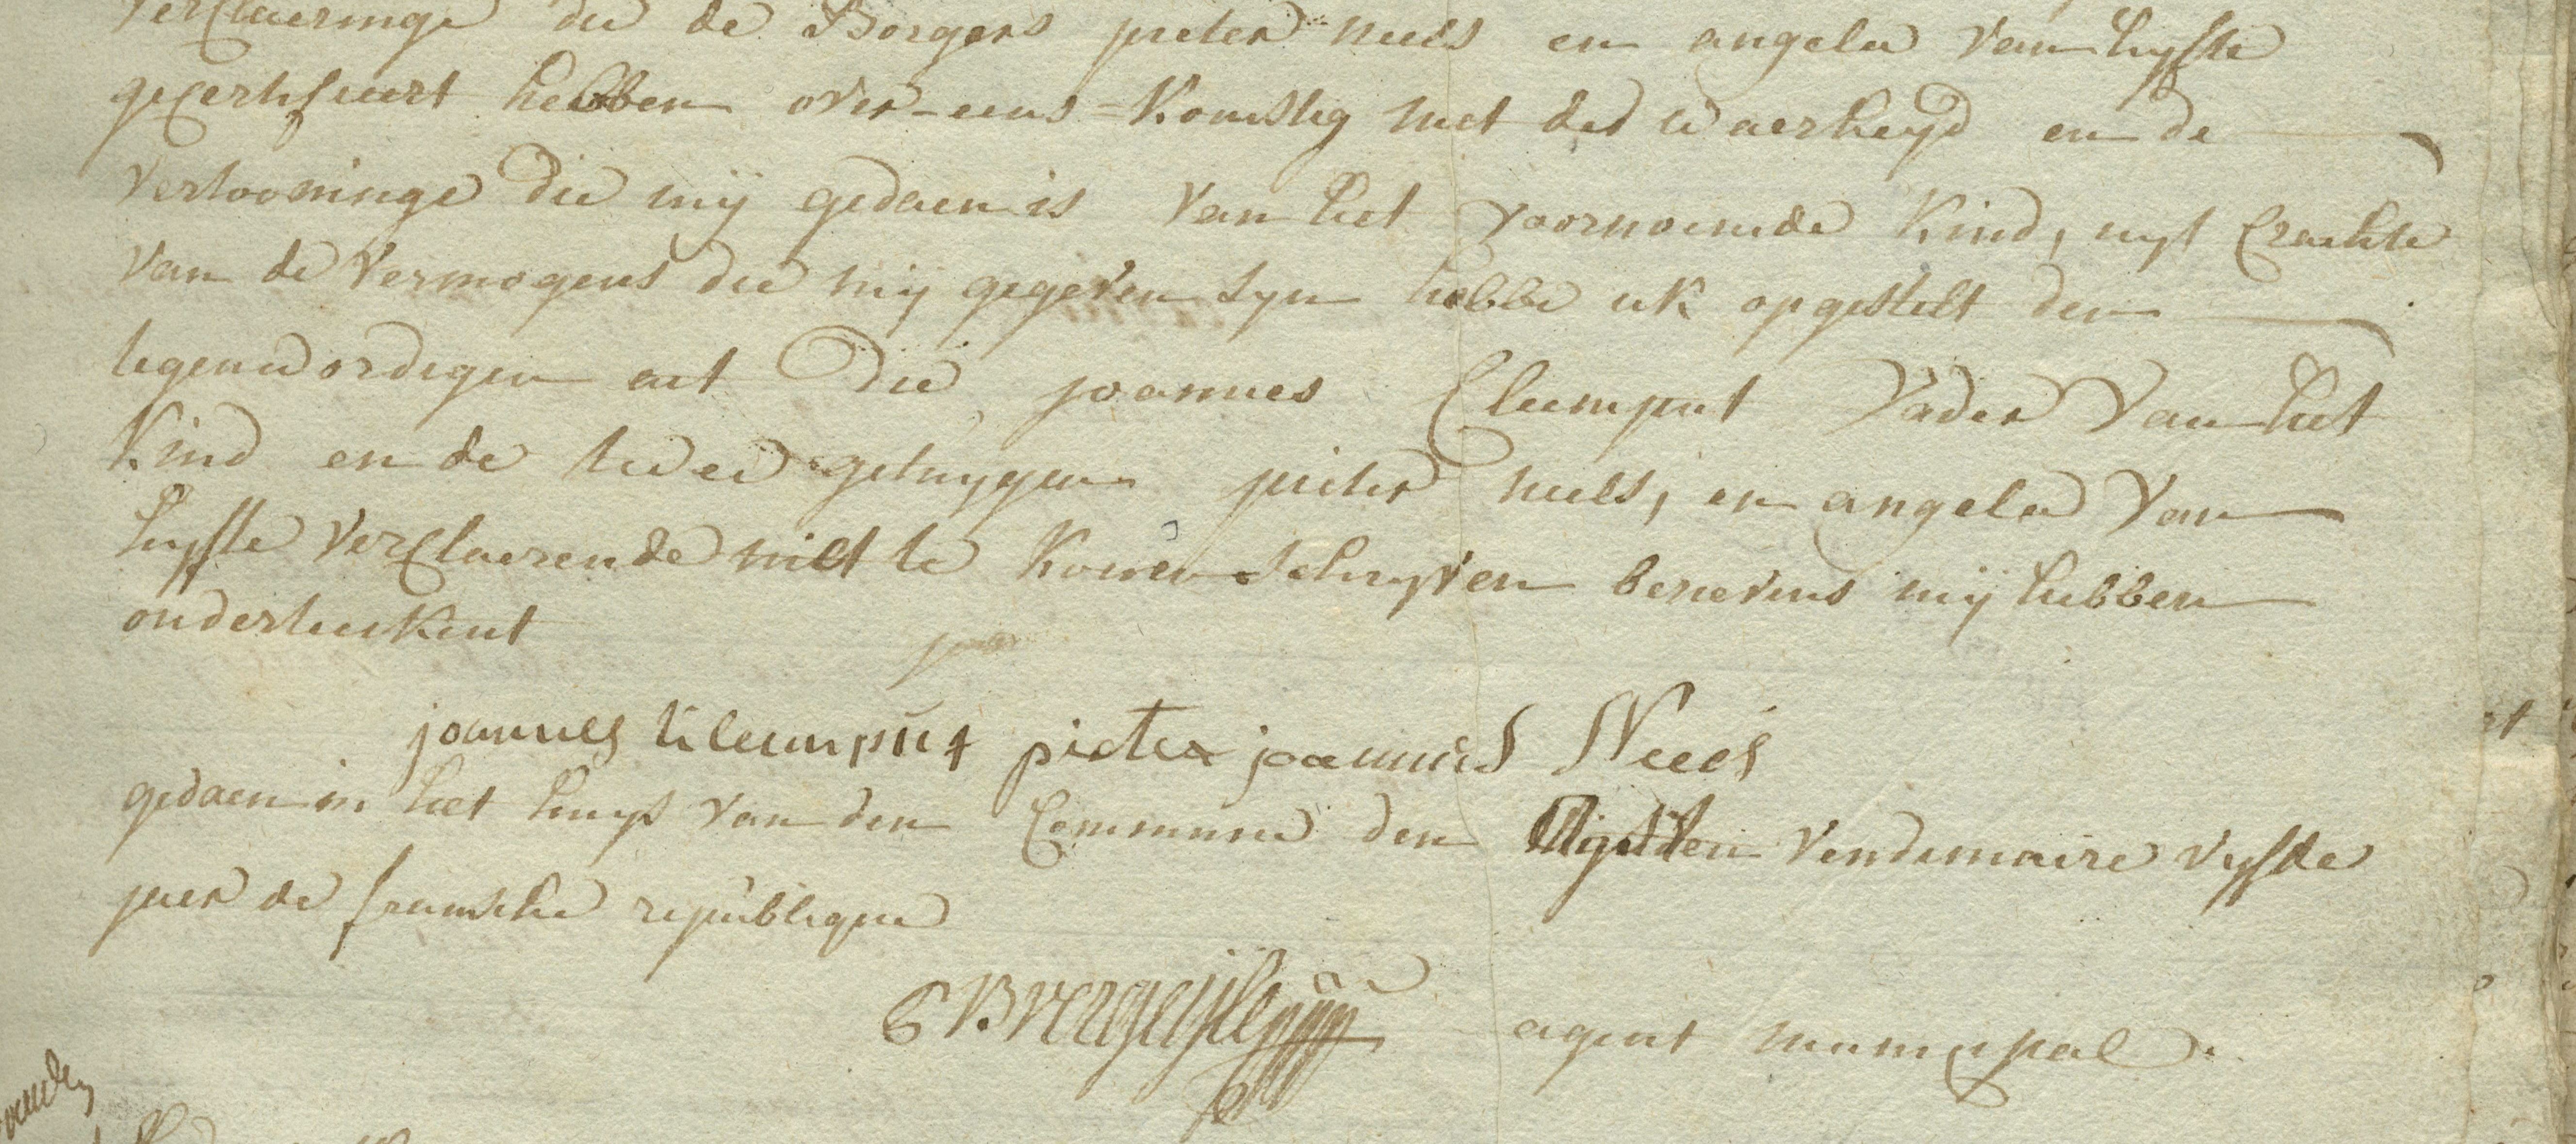 verclaeringe die de Borgers pieter neels en angela van hyfte
gecertifieert hebben over-eens=komstig met de waerheyd en de
vertooninge die mij gedaen is van het voornoemde kind, uyt crachte
van de vermogens die mij gegeven syn hebbe ik opgestelt den
tegenwordigen act die joannes Cleemput vader van het
kind en de twee getuygen pieter neels, en angela van
hyfte verclaerende niet te konnen schryven benevens mij hebben
onderteekent
joannes kleemput pieter joannis Neels
gedaen in het huys van den Commune den Vendemaire vyfde
jaer de fransche republique
agent municipal